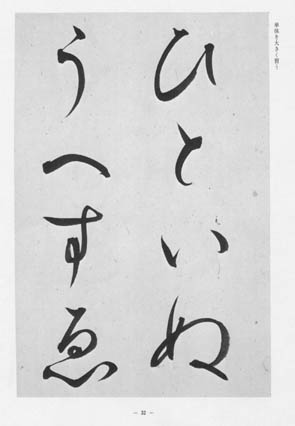 単体を大きく習う
ひといぬ
うへすゑ
— 32 —